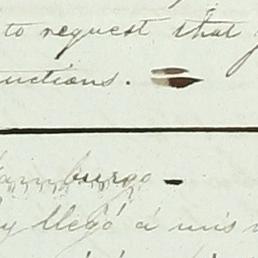 to request that
uctions.
Hamburgo -
y llegó á mis